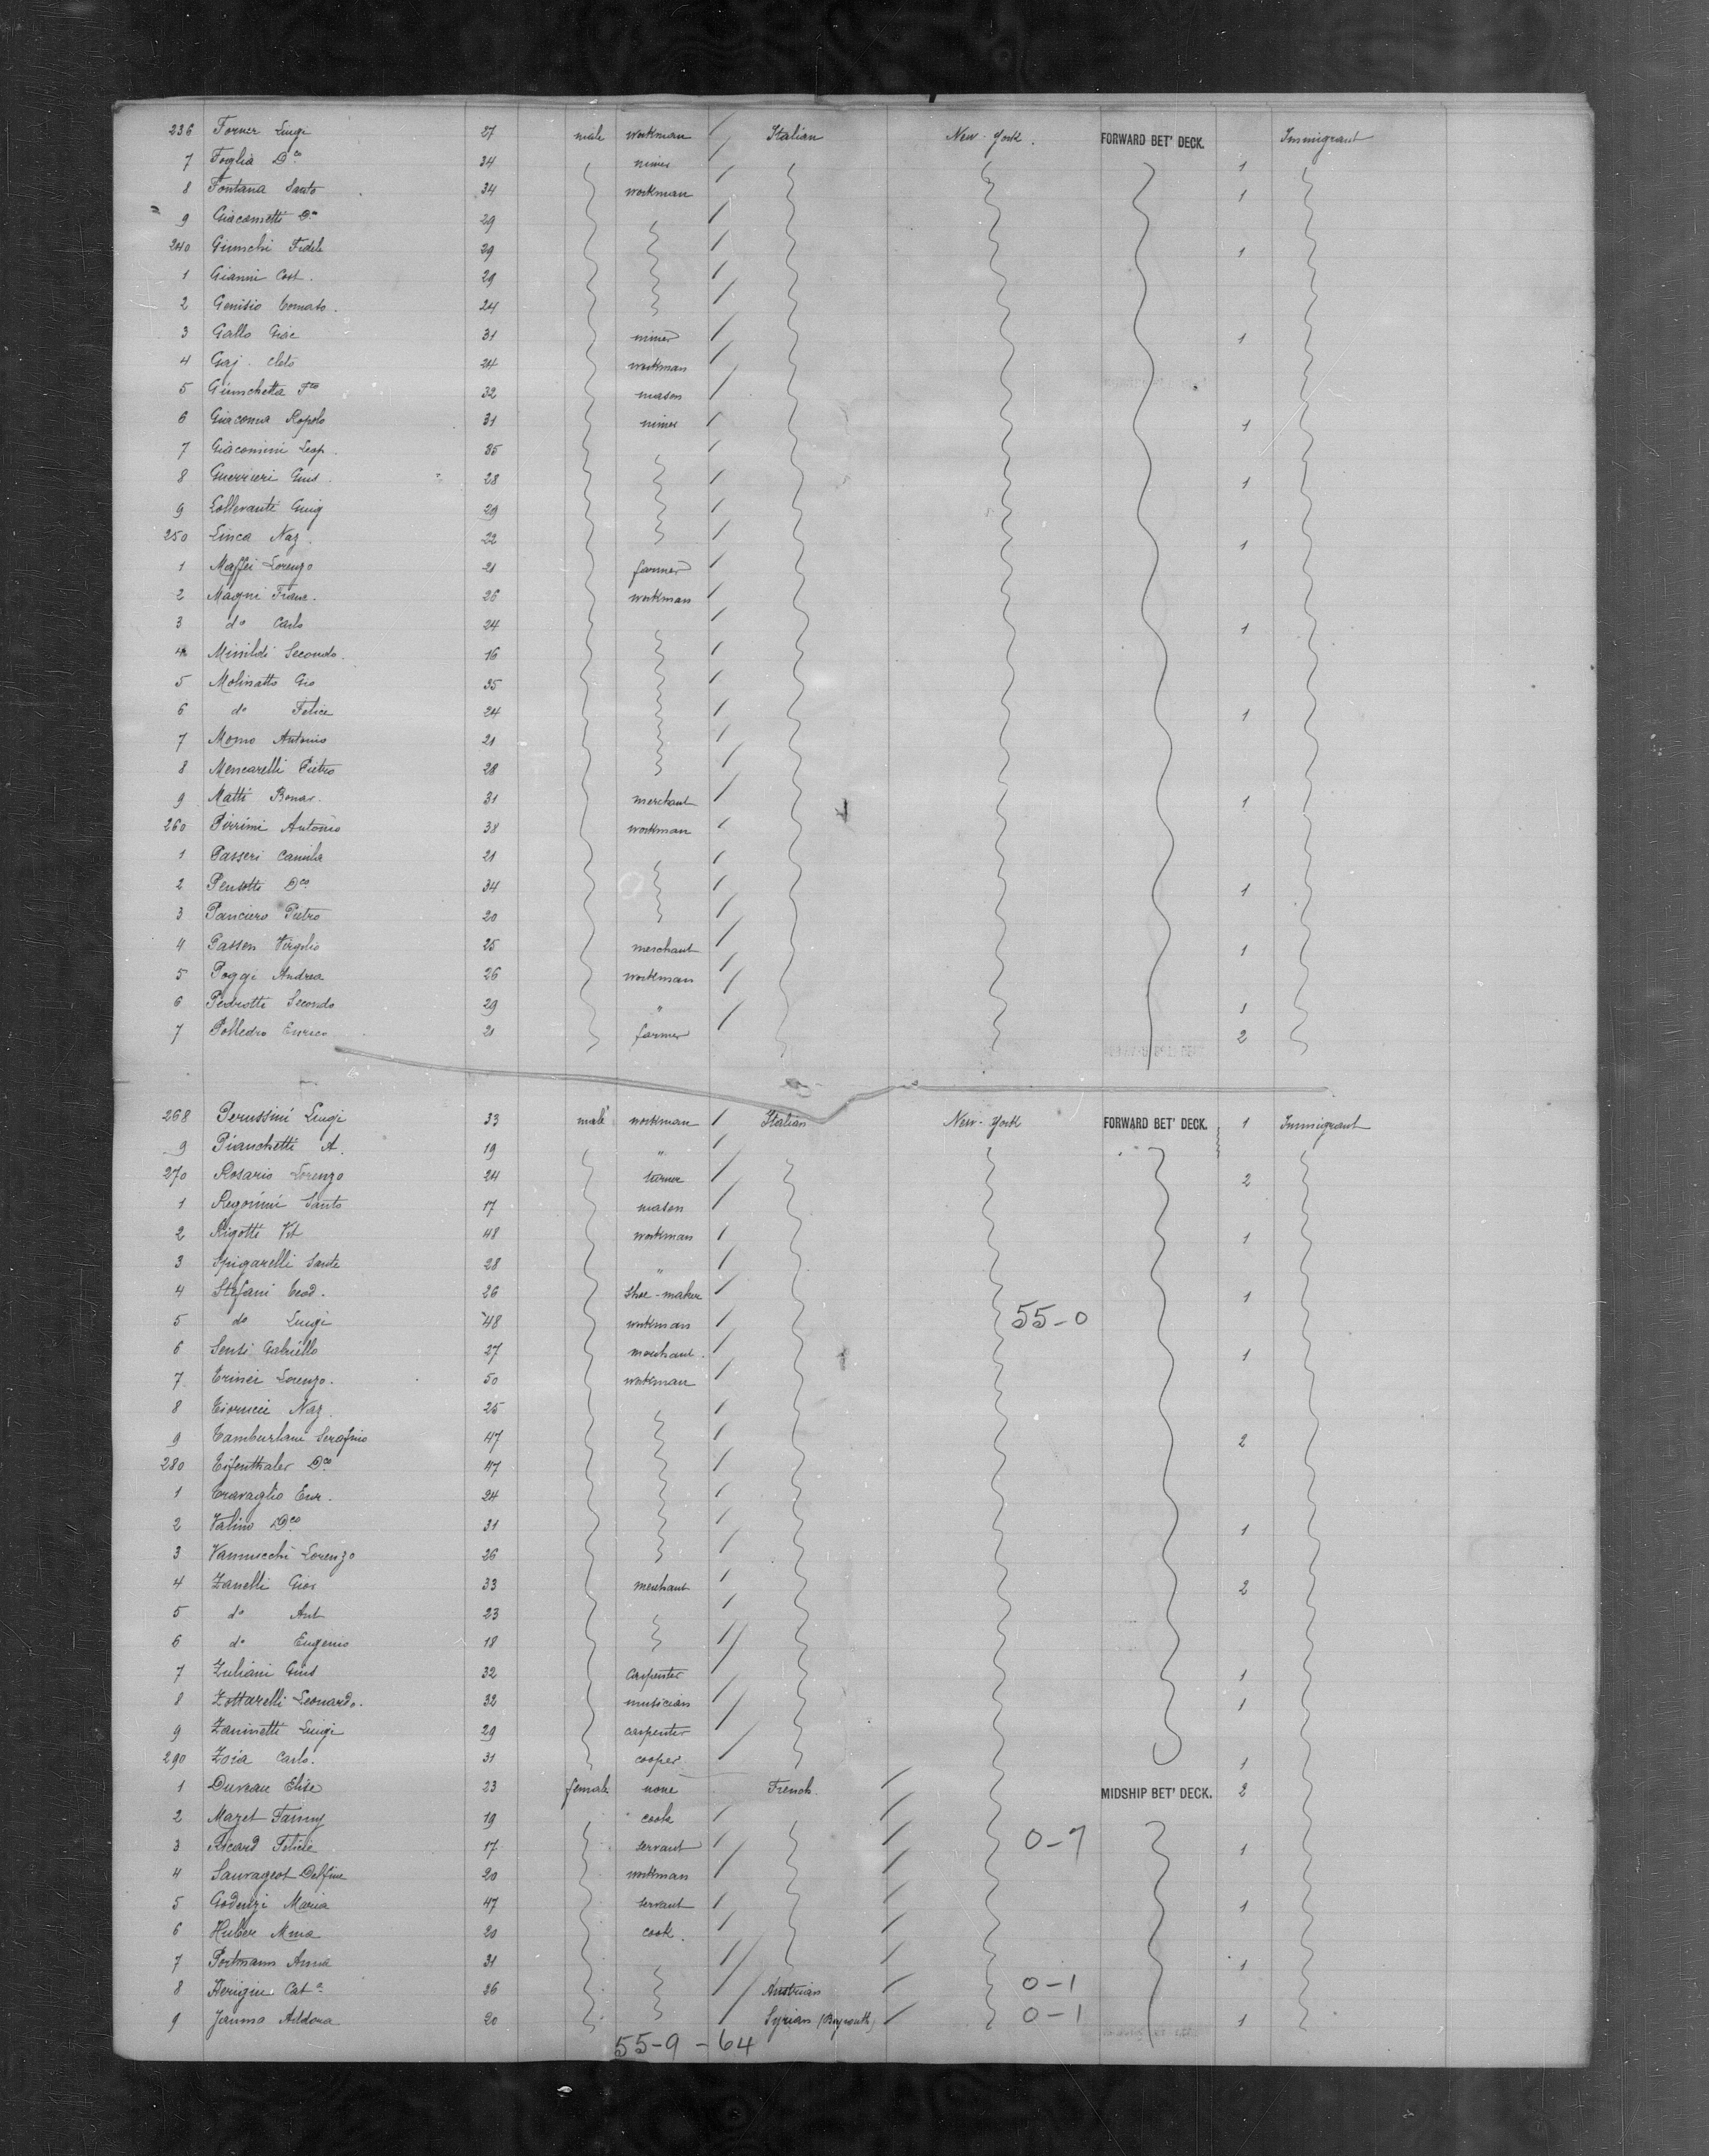 236 Forner Luigi 27 male workman Italian New-York. FORWARD BET' DECK. Immigrant
7 Foglia Dco 34 miner 1
8 Fontana Santo 34 workman 1
9 Giacometti Dco 29
240 Giunchi Fidele 29 1
1 Gianni Cost. 29
2 Genisio Tomaso. 24
3 Gallo Giac 31 miner 1
4 Gaj. Cleto 24 workman
5 Giunchetta Fco 32 mason
6 Giacoma Ropolo 31 miner 1
7 Giacomini Leop. 35
8 Guerrieri Gius. 28 1
9 Lollevanti Guig 29
250 Linca Naz. 22 1
1 Maffei Lorenzo 21 farmer
2 Magni Franc. 26 workman
3 do Carlo 24 1
4 Secondo. 16
5 Molinatto Gio 35
6 do Felice 24 1
7 Momo Antonio 21
8 Mencarelli Pietro 28
9 Matti Bonar. 31 merchant 1
260 Pirrimi Antonio 38 workman
1 Passeri Camila 21
2 Pensotti Dco 34 1
3 Panciero Pietro 20
4 Passeri Virgilio 25 merchant 1
5 Poggi Andrea 26 workman
6 Pedrotti Secondo 29 " 1
7 Polledro Enrico 21 farmer 2
268 Perussini Luigi 33 male workman Italian New-York FORWARD BET' DECK. 1 Immigrant
9 Pianchetti A. 19 "
270 Rosario Lorenzo 24 turner 2
1 Regonini Santo 17 mason
2 Rigotti Vit 48 workman 1
3 Spigarelli Sante 28 "
4 Stefani Teod. 26 shoe-maker 1
5 do Luigi 48 workman 55-0
6 Sensi Gabriello 27 merchant. 1
7 Trinei Lorenzo. 50 workman
8 Tiorucci Naz. 25
9 Tamburlani Serafino 47 2
280 Tifenthaler Dco 47
1 Travaglio Eur. 24
2 Valino Dco 31 1
3 Vannucchi Lorenzo 26
4 Zanelli Gior 33 merchant 2
5 do Ant 23
6 do Eugenio 18
7 Zuliani Gius 32 carpenter 1
8 Zottarelli Leonardo. 32 musician 1
9 Zaninetti Luigi 29 carpenter
290 Zoia Carlo. 31 cooper. 1
1 Duveau Elise 23 female none French. MIDSHIP BET' DECK. 2
2 Mazet Fanny 19 cook
3 Ricard Felicie 17 servant 0-7 1
4 Sauvageot Delfine 20 workman
5 Godenzi Maria 47 servant 1
6 Huber Mina 20 cook.
7 Portmann Anna 31 1
8 Cata 26 Austrian 0-1
9 Jauma Addona 20 Syrian (Beyrouth) 0-1 1
55-9-64